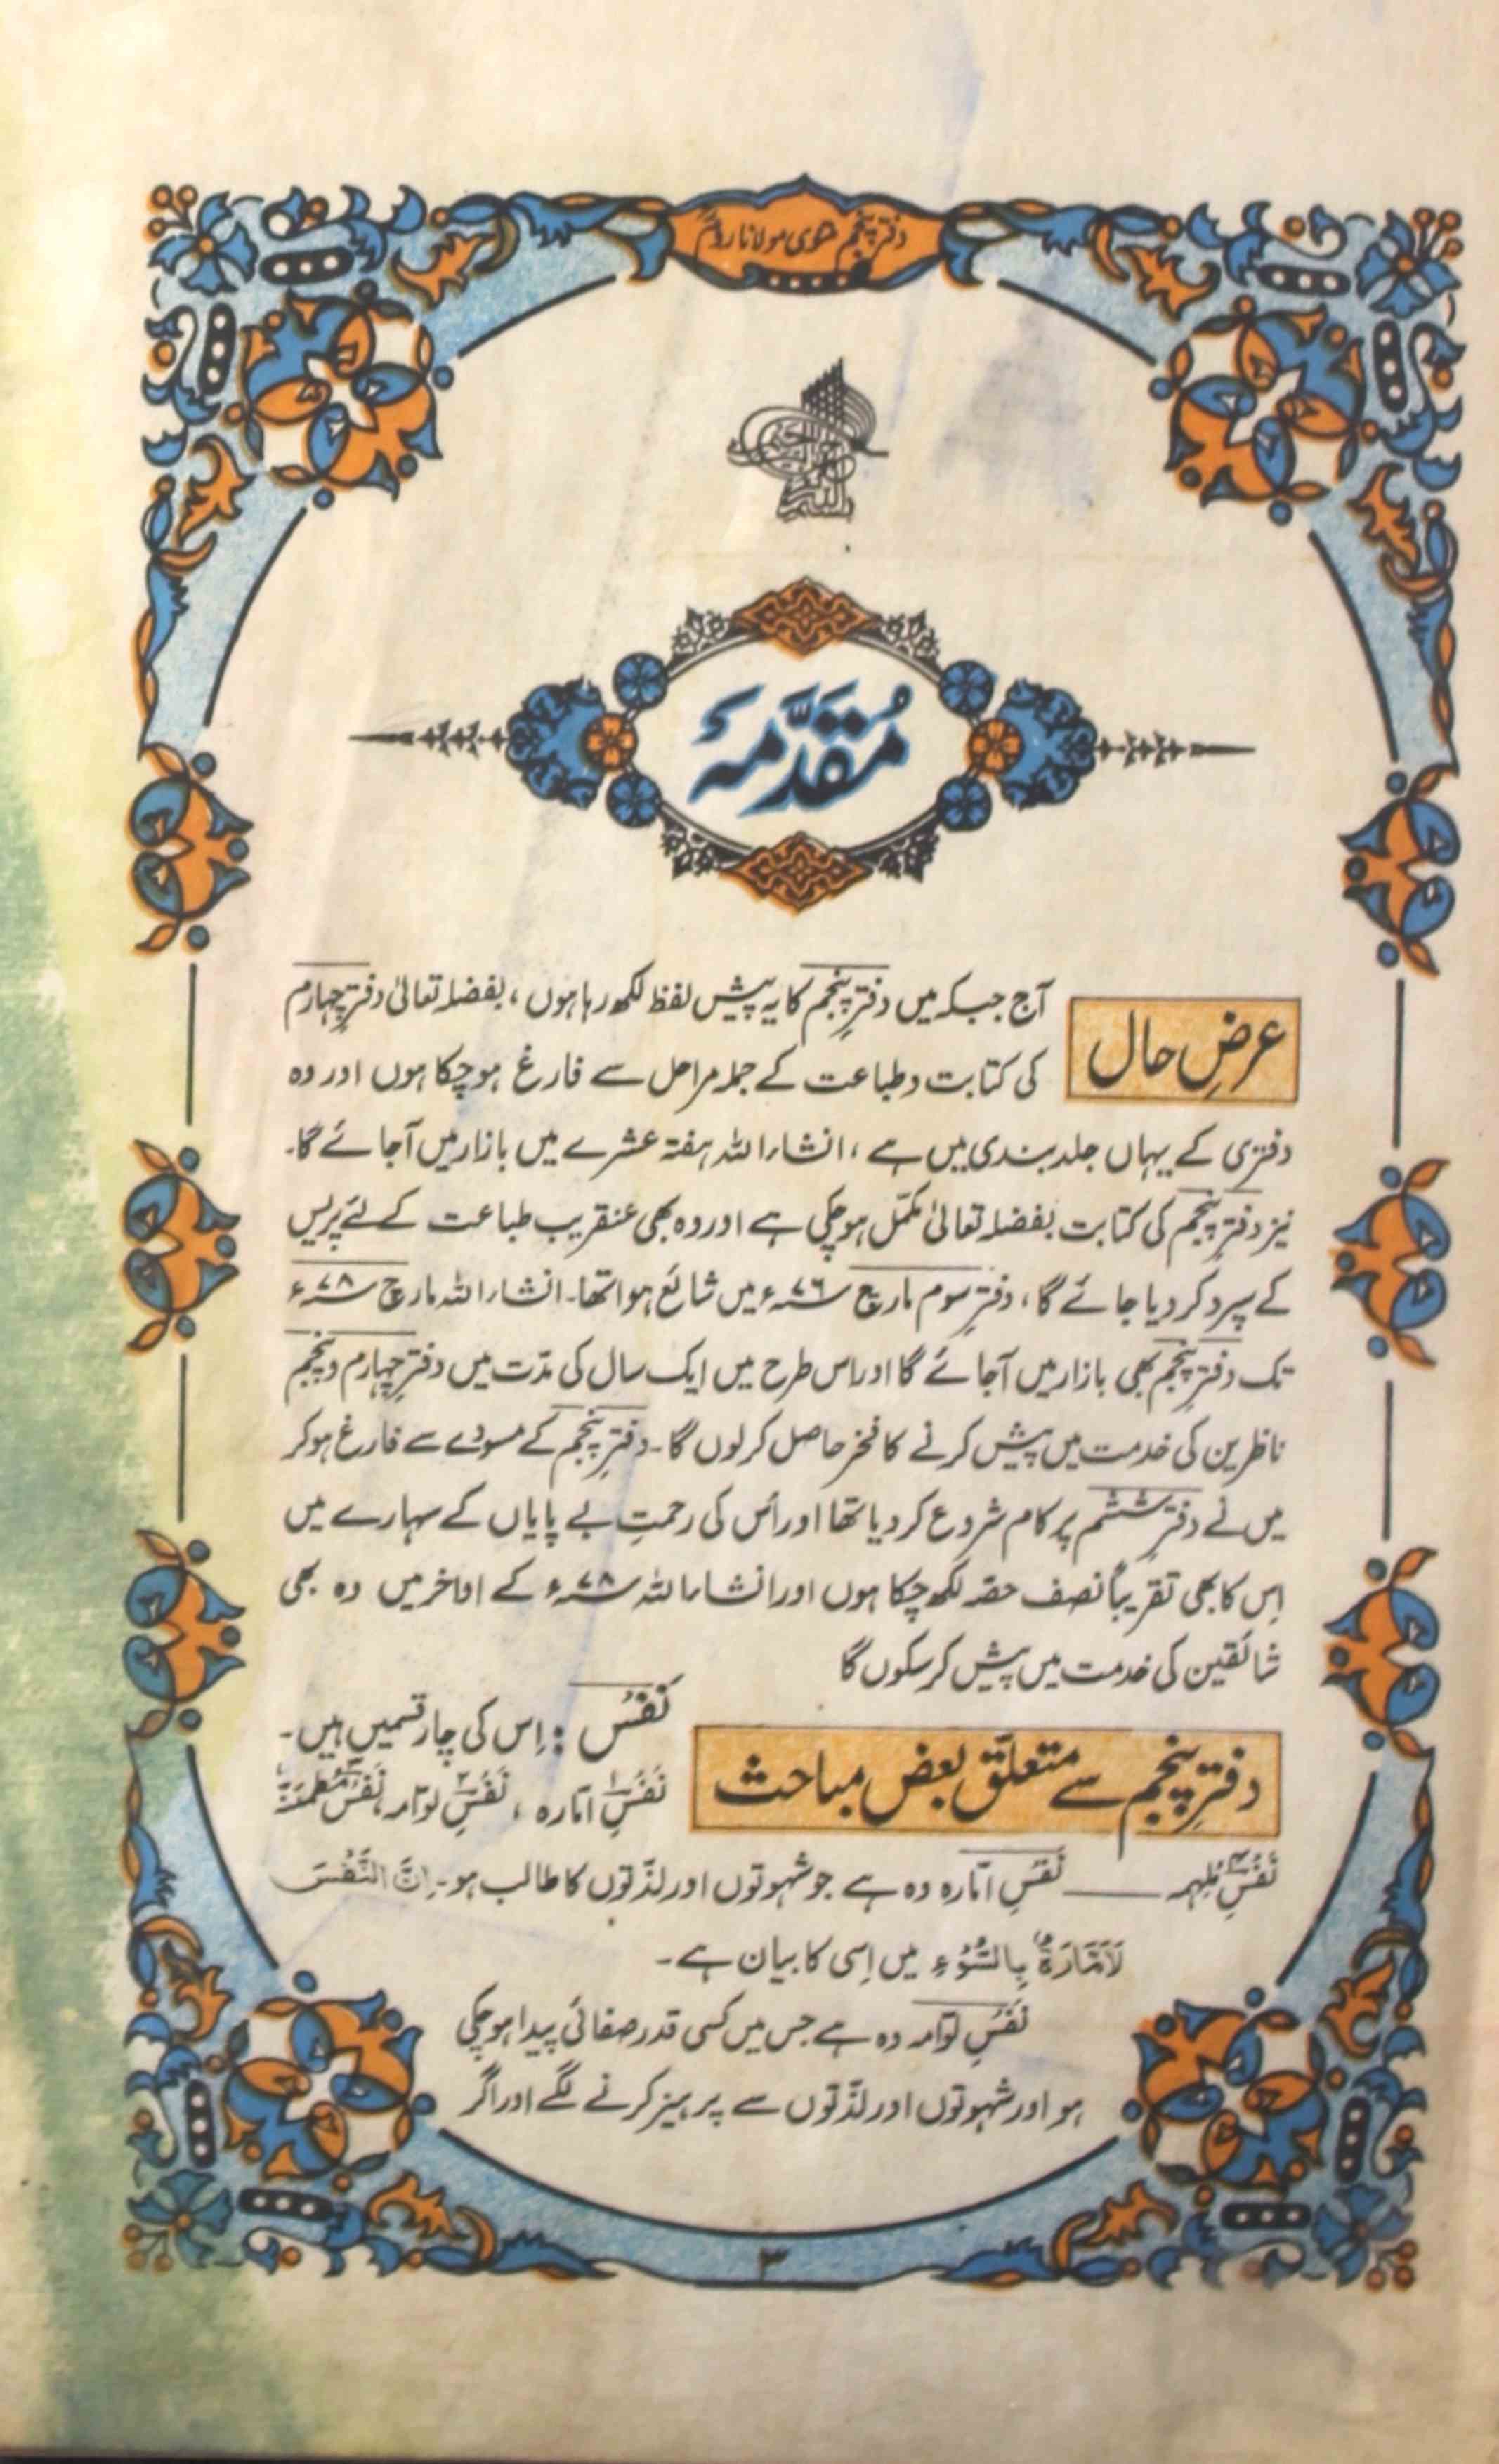 دفترِ پنجم مثنوی مولانا رومؒ
مُقَدَّمَہٗ
عرضِ حال
آج جبکہ میں دفترِ پنجم کا یہ پیش لفظ لکھ رہا ہوں، بفضلہ تعالیٰ دفترِ چہارم
کی کتابت و طباعت کے جملہ مراحل سے فارغ ہو چکا ہوں اور وہ
دفتری کے یہاں جلد بندی میں ہے، انشاء اللہ ہفتہ عشرے میں بازار میں آجائے گا۔
نیز دفترِ پنجم کی کتابت بفضلہ تعالیٰ مکمّل ہو چکی ہے اور وہ بھی عنقریب طباعت کے لئے پریس
کے سپرد کر دیا جائے گا، دفترِ سوم مارچ ۷۶ء میں شائع ہوا تھا۔ انشاء اللہ مارچ ۷۸ء
تک دفترِ پنجم بھی بازار میں آجائے گا اور اس طرح میں ایک سال کی مدّت میں دفترِ چہارم و پنجم
ناظرین کی خدمت میں پیش کرنے کا فخر حاصل کر لوں گا۔ دفترِ پنجم کے مسودے سے فارغ ہو کر
میں نے دفترِ ششم پر کام شروع کر دیا تھا اور اُس کی رحمتِ بے پایاں کے سہارے میں
اِس کا بھی تقریباً نصف حصّہ لکھ چکا ہوں اور انشاء اللہ ۷۸ء کے اواخر میں وہ بھی
شائقین کی خدمت میں پیش کر سکوں گا
دفترِ پنجم سے متعلّق بعض مباحث
نَفْس : اِس کی چار قسمیں ہیں۔
نَفْسِ امّارہ ، نَفْسِ لوّامہ، نَفْسِ مُطمَئنّہ
نَفْسِ مُلہِمہ ــــــ نَفْسِ امّارہ وہ ہے جو شہوتوں اور لذّتوں کا طالب ہو۔ اِنَّ النَّفْسَ
لَاَمَّارَۃٌ بِالسُّوْءِ میں اِسی کا بیان ہے۔
نَفْسِ لوّامہ وہ ہے جس میں کسی قدر صفائی پیدا ہو چکی
ہو اور شہوتوں اور لذّتوں سے پرہیز کرنے لگے اور اگر
۳